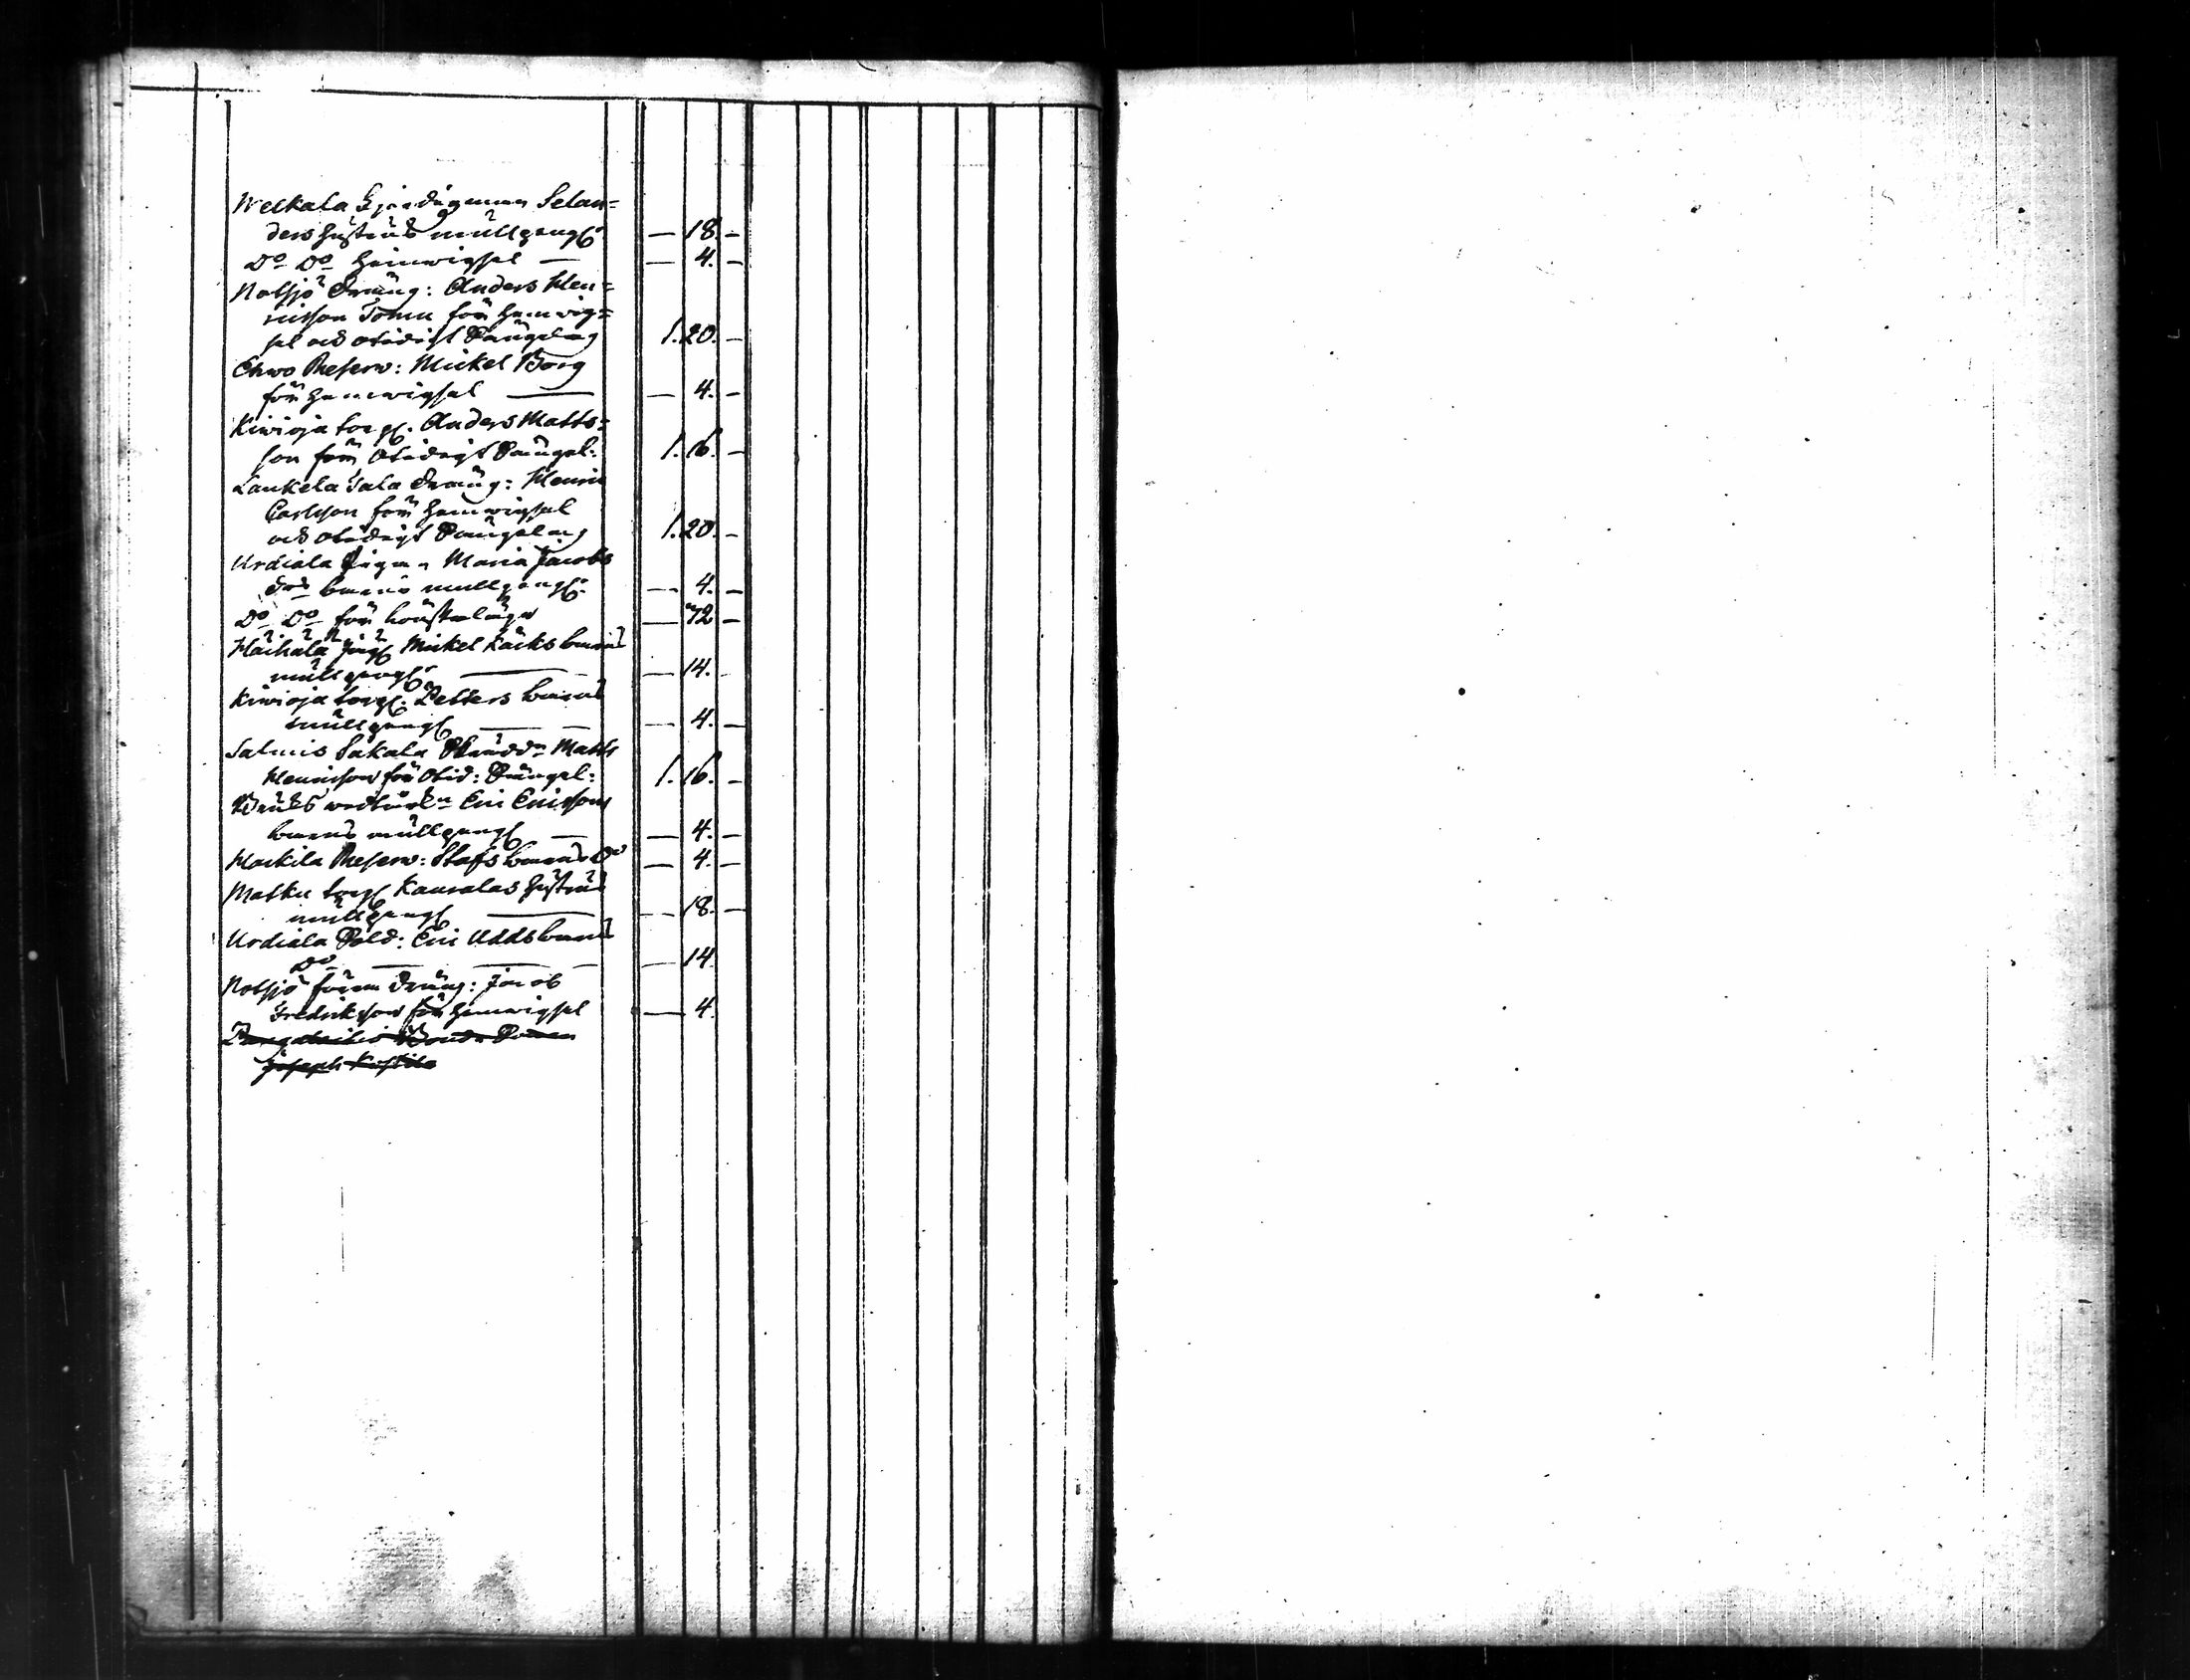 Welkala Selan=
ders hustrus mullpengr — 18. –
Do Do hemwigsel — — 4. –
Notsjö Dräng: Anders Hen=
ricsson Tomu för hemwig=
sel och otidigt Sängelag 1. 20. –
Ehwo Reserw: Mickel Borg
för hemwigsel — — 4. –
Kiwioja torp. Anders Matts=
son för otidigt Sängel: 1. 16. –
Laukela Sala Dräng: Henric
Carlsson för hemwigsel
och otidigt Sängelag 1. 20. –
Urdiala Pigan Maria Jacobs
dr barns mullpengr — 4. –
Do Do för — 72 –
Häihälä Mickel Käcks barns
mullpengr — — 14.
Kiwioja torp. Petters barns
mullpengr — — 4. –
Salmis Sakala Skrädd Matts
Henricsson för otid: Sängel: 1. 16. –
Bruks Eric Ericssons
barns mullpengr — — 4. –
Hackila Reserw: Stafs barns Do — 4. –
Matku torp Kauralas hustrus
mullpengr — — 18. –
Urdiala Sold: Eric Udds barns
Do — — 14.
Notsjö förra Dräng: Jacob
Fredriksson för hemwigsel — 4.
Bonde Sonen
Joseph